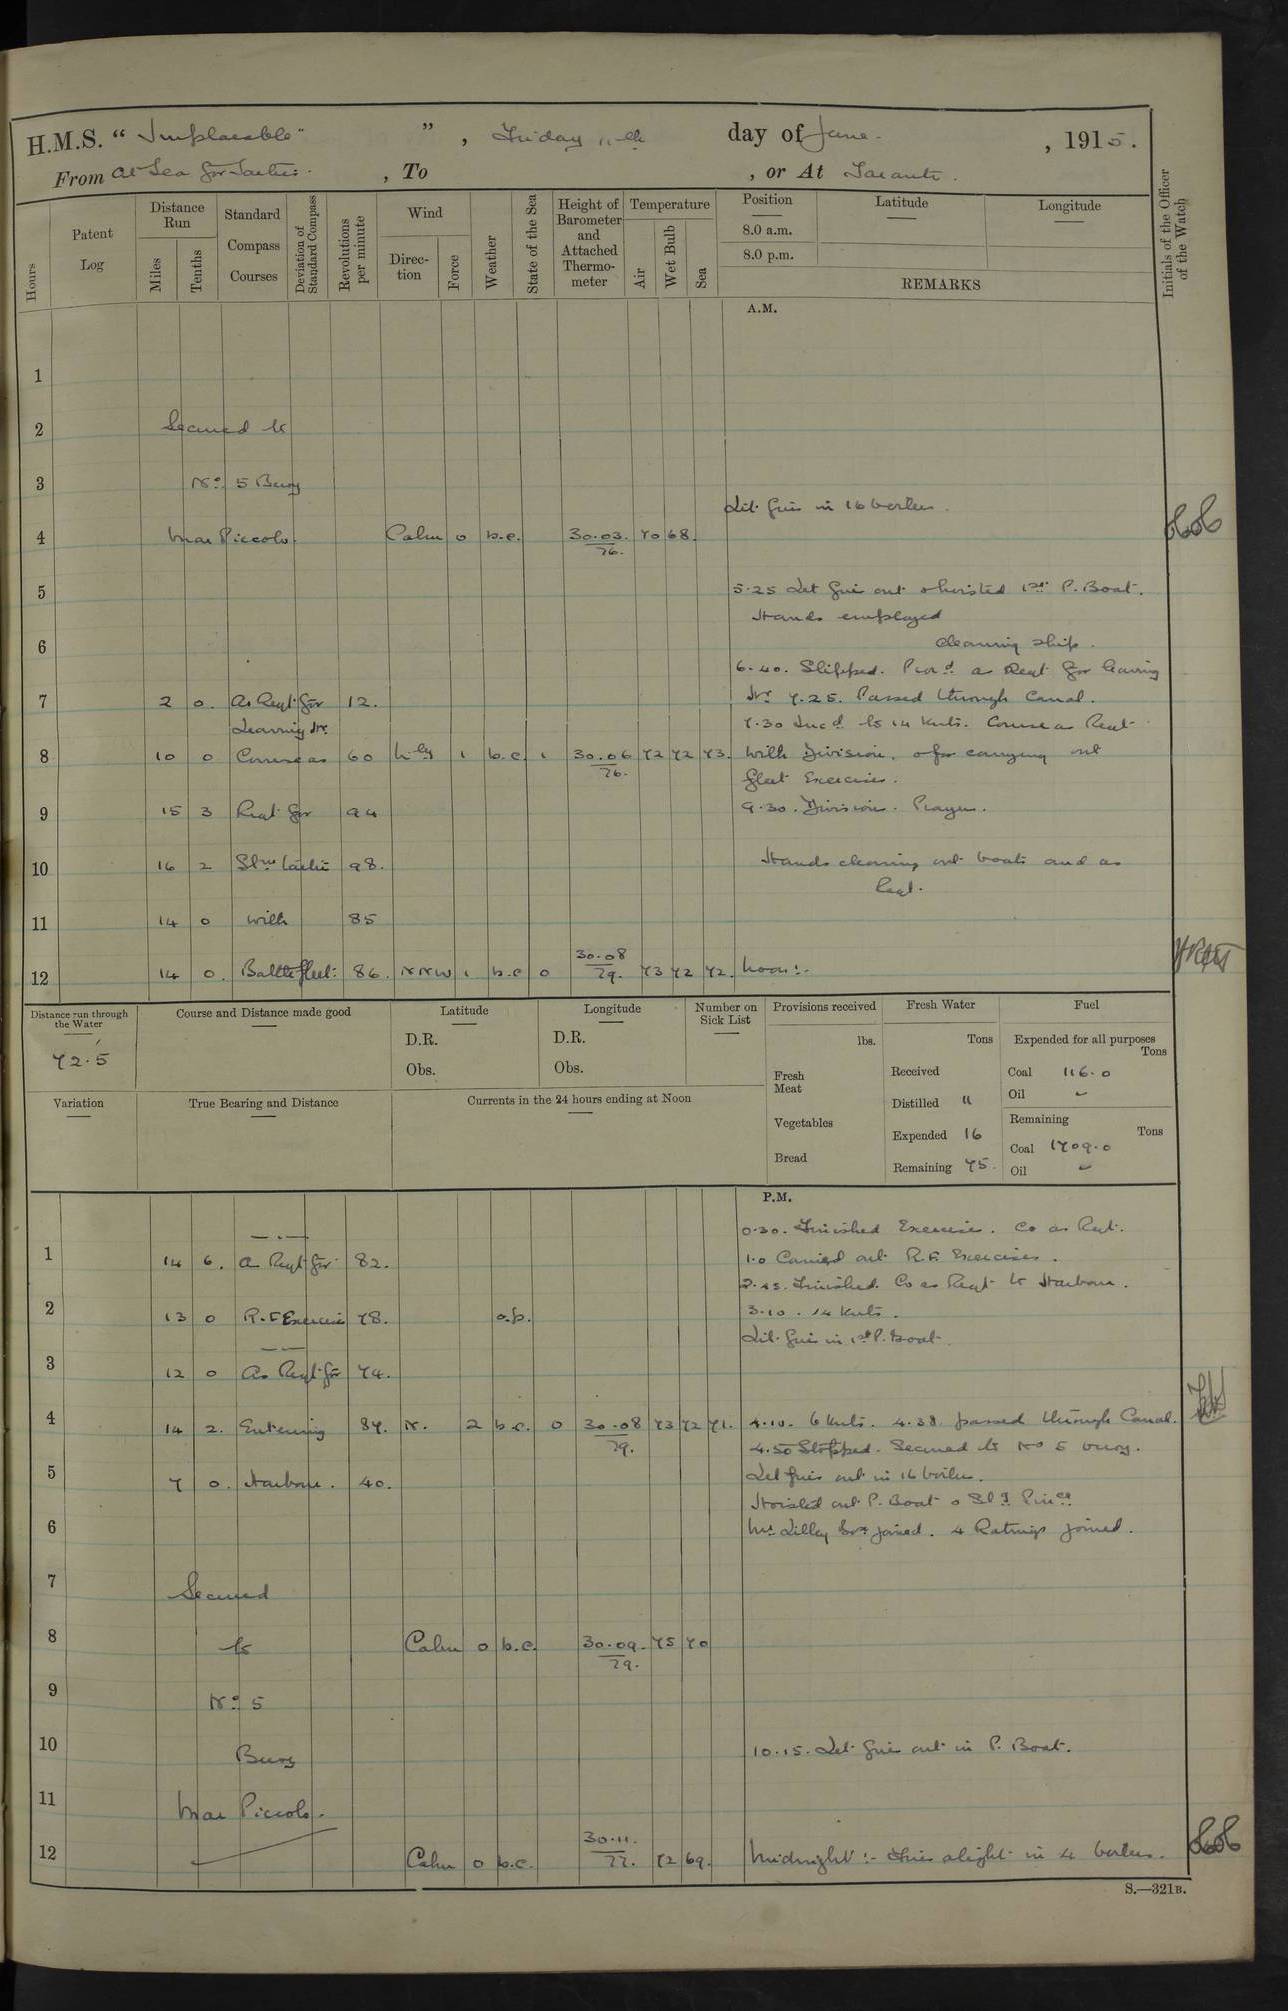 H.M.S. " Implacable " , Friday 11th day of June , 1915.
From At Sea for Tactics. , To , or At Taranto.
Hours
Patent Log
Distance Run
Miles
Tenths
Standard Compass Courses
Deviation of Standard Compass
Revolutions per minute
Wind
Direction
Force
Weather
State of the Sea
Height of Barometer and Attached Thermometer
Temperature
Air
Wet Bulb
Sea
Position
8.0 a.m.
8.0 p.m.
Latitude
Longitude
REMARKS
Initials of the Officer of the Watch
A.M.
1
2 Secured to
3 No. 5 Buoy
Lit fires in 16 boilers.
4 Mar Piccolo. Calm 0 b.c. 30.03. 76. 70 68.
5 5.25 Let fire out & hoisted 1st P. Boat.
Hands employed
6 cleaning ship.
6.40. Slipped. Procd. as Reqt for leaving
7 2 0. As Reqt for 12. Hr. 7.25. Passed through Canal.
Leaving Hr. 7.30 Incd. to 14 Knts. Course as Reqt
8 10 0 Course as 60 1 b.c. 1 30.06 76. 72 72 73. with Division. & for carrying out
fleet Exercises.
9 15 3 Reqt for 94 9.30. Divisions. Prayers.
10 16 2 Stm. tactics 98. Hands cleaning out boats and as
Reqt.
11 14 0 with 85
12 14 0. Battle fleet: 86. NNW 1 b.c 0 30.08 79. 73 72 72. Noon:-
Distance run through the Water
72.5
Course and Distance made good
Latitude
D.R.
Obs.
Longitude
D.R.
Obs.
Number on Sick List
Provisions received
lbs.
Fresh Meat
Vegetables
Bread
Fresh Water
Tons
Received
Distilled 11
Expended 16
Remaining 75.
Fuel
Expended for all purposes
Tons
Coal 116.0
Oil
Remaining
Tons
Coal 1709.0
Oil
Variation
True Bearing and Distance
Currents in the 24 hours ending at Noon
P.M.
0.30. Finished Exercise. Co as Reqt.
1 14 6. As Reqt for 82. 1.0 Carried out R.F. Exercises.
2.45. Finished. Co as Reqt to Harbour.
2 13 0 R.F Exercises 78. o.p. 3.10. 14 Knts.
Lit fires in 1st P. Boat.
3 12 0 As Reqt for 74.
4 14 2. Entering 87. N. 2 b.c. 0 30.08 79. 73 72 71. 4.10. 6 Knts. 4.38. passed through Canal.
4.50 Stopped. Secured to No 5 buoy.
5 7 0. Harbour. 40. Let fires out in 16 boilers.
Hoisted out P. Boat & Std. Pince
6 Mr Lilley Bosn joined. 4 Ratings joined.
7 Secured
8 to Calm 0 b.c. 30.09. 79. 75 70
9 No. 5
10 Buoy 10.15. Let fires out in P. Boat.
11 Mar Piccolo.
12 Calm 0 b.c. 30.11. 77. 72 69. Midnight:- Fires alight in 4 boilers.
S.—321B.